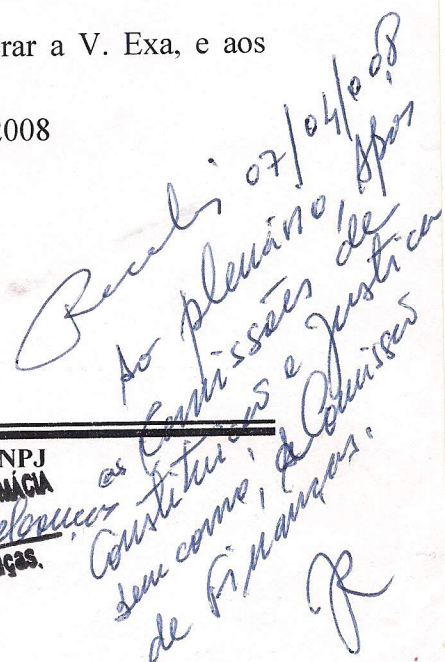 rar a V. Exa, e aos
2008
Recebi 07/04/008
Ao plenário, Após
as Comissões de
Constituição e Justiça
bem como, a Comissão
de Finanças.
NPJ
MÁCIA
nças.